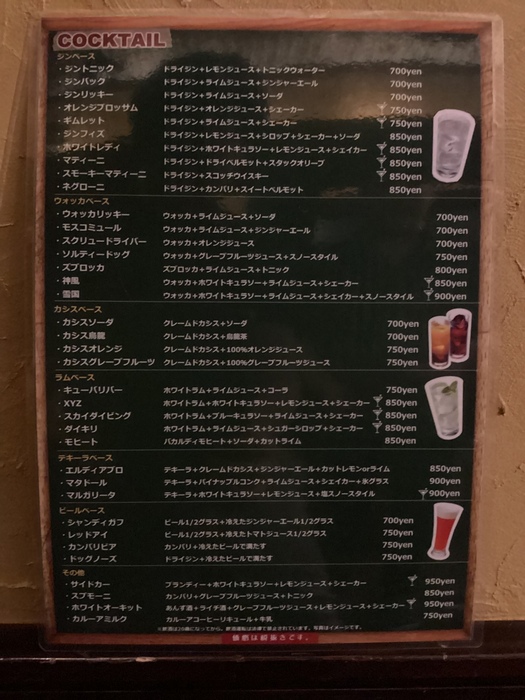 COCKTAIL
ジンベース
・ジントニック ドライジン+レモンジュース+トニックウォーター 700yen
・ジンバック ドライジン+ライムジュース+ジンジャーエール 700yen
・ジンリッキー ドライジン+ライムジュース+ソーダ 700yen
・オレンジブロッサム ドライジン+オレンジジュース+シェーカー 750yen
・ギムレット ドライジン+ライムジュース+シェーカー 750yen
・ジンフィズ ドライジン+レモンジュース+シロップ+シェーカー+ソーダ 850yen
・ホワイトレディ ドライジン+ホワイトキュラソー+レモンジュース+シェイカー 850yen
・マティーニ ドライジン+ドライベルモット+スタックオリーブ 850yen
・スモーキーマティーニ ドライジン+スコッチウイスキー 850yen
・ネグローニ ドライジン+カンパリ+スイートベルモット 850yen
ウォッカベース
・ウォッカリッキー ウォッカ+ライムジュース+ソーダ 700yen
・モスコミュール ウォッカ+ライムジュース+ジンジャーエール 700yen
・スクリュードライバー ウォッカ+オレンジジュース 700yen
・ソルティードッグ ウォッカ+グレープフルーツジュース+スノースタイル 750yen
・ズブロッカ ズブロッカ+ライムジュース+トニック 800yen
・神風 ウォッカ+ホワイトキュラソー+ライムジュース+シェーカー 850yen
・雪国 ウォッカ+ホワイトキュラソー+ライムジュース+シェイカー+スノースタイル 900yen
カシスベース
・カシスソーダ クレームドカシス+ソーダ 700yen
・カシス烏龍 クレームドカシス+烏龍茶 700yen
・カシスオレンジ クレームドカシス+100%オレンジジュース 750yen
・カシスグレープフルーツ クレームドカシス+100%グレープフルーツジュース 750yen
ラムベース
・キューバリバー ホワイトラム+ライムジュース+コーラ 750yen
・XYZ ホワイトラム+ホワイトキュラソー+レモンジュース+シェーカー 850yen
・スカイダイビング ホワイトラム+ブルーキュラソー+ライムジュース+シェーカー 850yen
・ダイキリ ホワイトラム+ライムジュース+シュガーシロップ+シェーカー 850yen
・モヒート バカルディモヒート+ソーダ+カットライム 850yen
テキーラベース
・エルディアブロ テキーラ+クレームドカシス+ジンジャーエール+カットレモンorライム 850yen
・マタドール テキーラ+パイナップルコンク+ライムジュース+シェイカー+氷グラス 900yen
・マルガリータ テキーラ+ホワイトキュラソー+レモンジュース+塩スノースタイル 900yen
ビールベース
・シャンディガフ ビール1/2グラス+冷えたジンジャーエール1/2グラス 700yen
・レッドアイ ビール1/2グラス+冷えたトマトジュース1/2グラス 750yen
・カンパリビア カンパリ+冷えたビールで満たす 750yen
・ドッグノーズ ドライジン+冷えたビールで満たす 750yen
その他
・サイドカー ブランディー+ホワイトキュラソー+レモンジュース+シェーカー 950yen
・スプモーニ カンパリ+グレープフルーツジュース+トニック 850yen
・ホワイトオーキット あんず酒+ライチ酒+グレープフルーツジュース+レモンジュース+シェーカー 950yen
・カルーアミルク カルーアコーヒーリキュール+牛乳 750yen
※飲酒は20歳になってから。飲酒運転は法律で禁止されています。写真はイメージです。